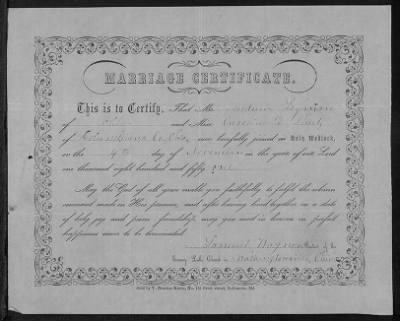 MARRIAGE CERTIFICATE.
This is to Certify, That Mr. Andrew
of and Miss
of Columbiana Co Ohio, were lawfully joined in Holy Wedlock,
on the 4th day of November in the year of our Lord
one thousand eight hundred and fifty one
May the God of all grace enable you faithfully to fulfil the solemn
covenant made in His presence, and after having lived together in a state
of holy joy and pure friendship, may you meet in heaven in perfect
happiness never to be terminated.
Samuel
Church
Sold by T. Newton Kurtz, No. 151 Pratt street, Baltimore, Md.